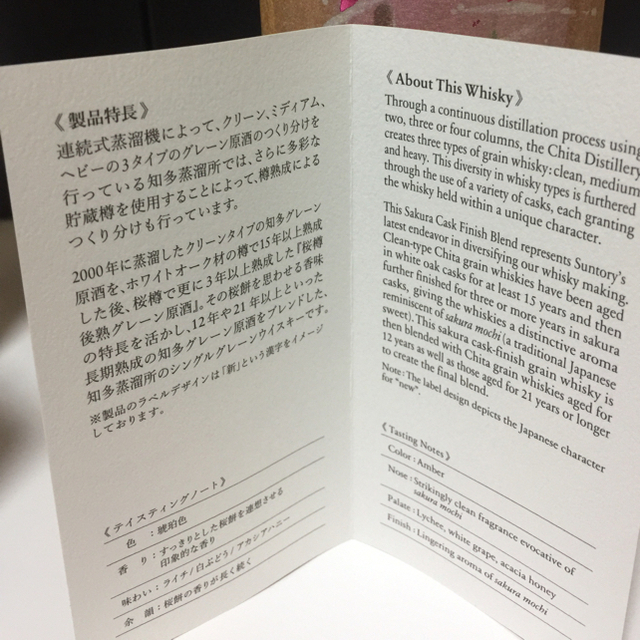 《製品特長》
連続式蒸溜機によって、クリーン、ミディアム、
ヘビーの3タイプのグレーン原酒のつくり分けを
行っている知多蒸溜所では、さらに多彩な
貯蔵樽を使用することによって、樽熟成による
つくり分けも行っています。
2000年に蒸溜したクリーンタイプの知多グレーン
原酒を、ホワイトオーク材の樽で15年以上熟成
した後、桜樽で更に3年以上熟成した『桜樽
後熟グレーン原酒』。その桜餅を思わせる香味
の特長を活かし、12年や21年以上といった
長期熟成の知多グレーン原酒をブレンドした、
知多蒸溜所のシングルグレーンウイスキーです。
※製品のラベルデザインは「新」という漢字をイメージ
しております。
《テイスティングノート》
色 : 琥珀色
香り : すっきりとした桜餅を連想させる
印象的な香り
味わい : ライチ/白ぶどう/アカシアハニー
余韻 : 桜餅の香りが長く続く
《About This Whisky》
Through a continuous distillation process using
two, three or four columns, the Chita Distillery
creates three types of grain whisky: clean, medium
and heavy. This diversity in whisky types is furthered
through the use of a variety of casks, each granting
the whisky held within a unique character.
This Sakura Cask Finish Blend represents Suntory's
latest endeavor in diversifying our whisky making.
Clean-type Chita grain whiskies have been aged
in white oak casks for at least 15 years and then
further finished for three or more years in sakura
casks, giving the whiskies a distinctive aroma
reminiscent of sakura mochi (a traditional Japanese
sweet). This sakura cask-finish grain whisky is
then blended with Chita grain whiskies aged for
12 years as well as those aged for 21 years or longer
to create the final blend.
Note: The label design depicts the Japanese character
for "new".
《Tasting Notes》
Color : Amber
Nose : Strikingly clean fragrance evocative of
sakura mochi
Palate : Lychee, white grape, acacia honey
Finish : Lingering aroma of sakura mochi